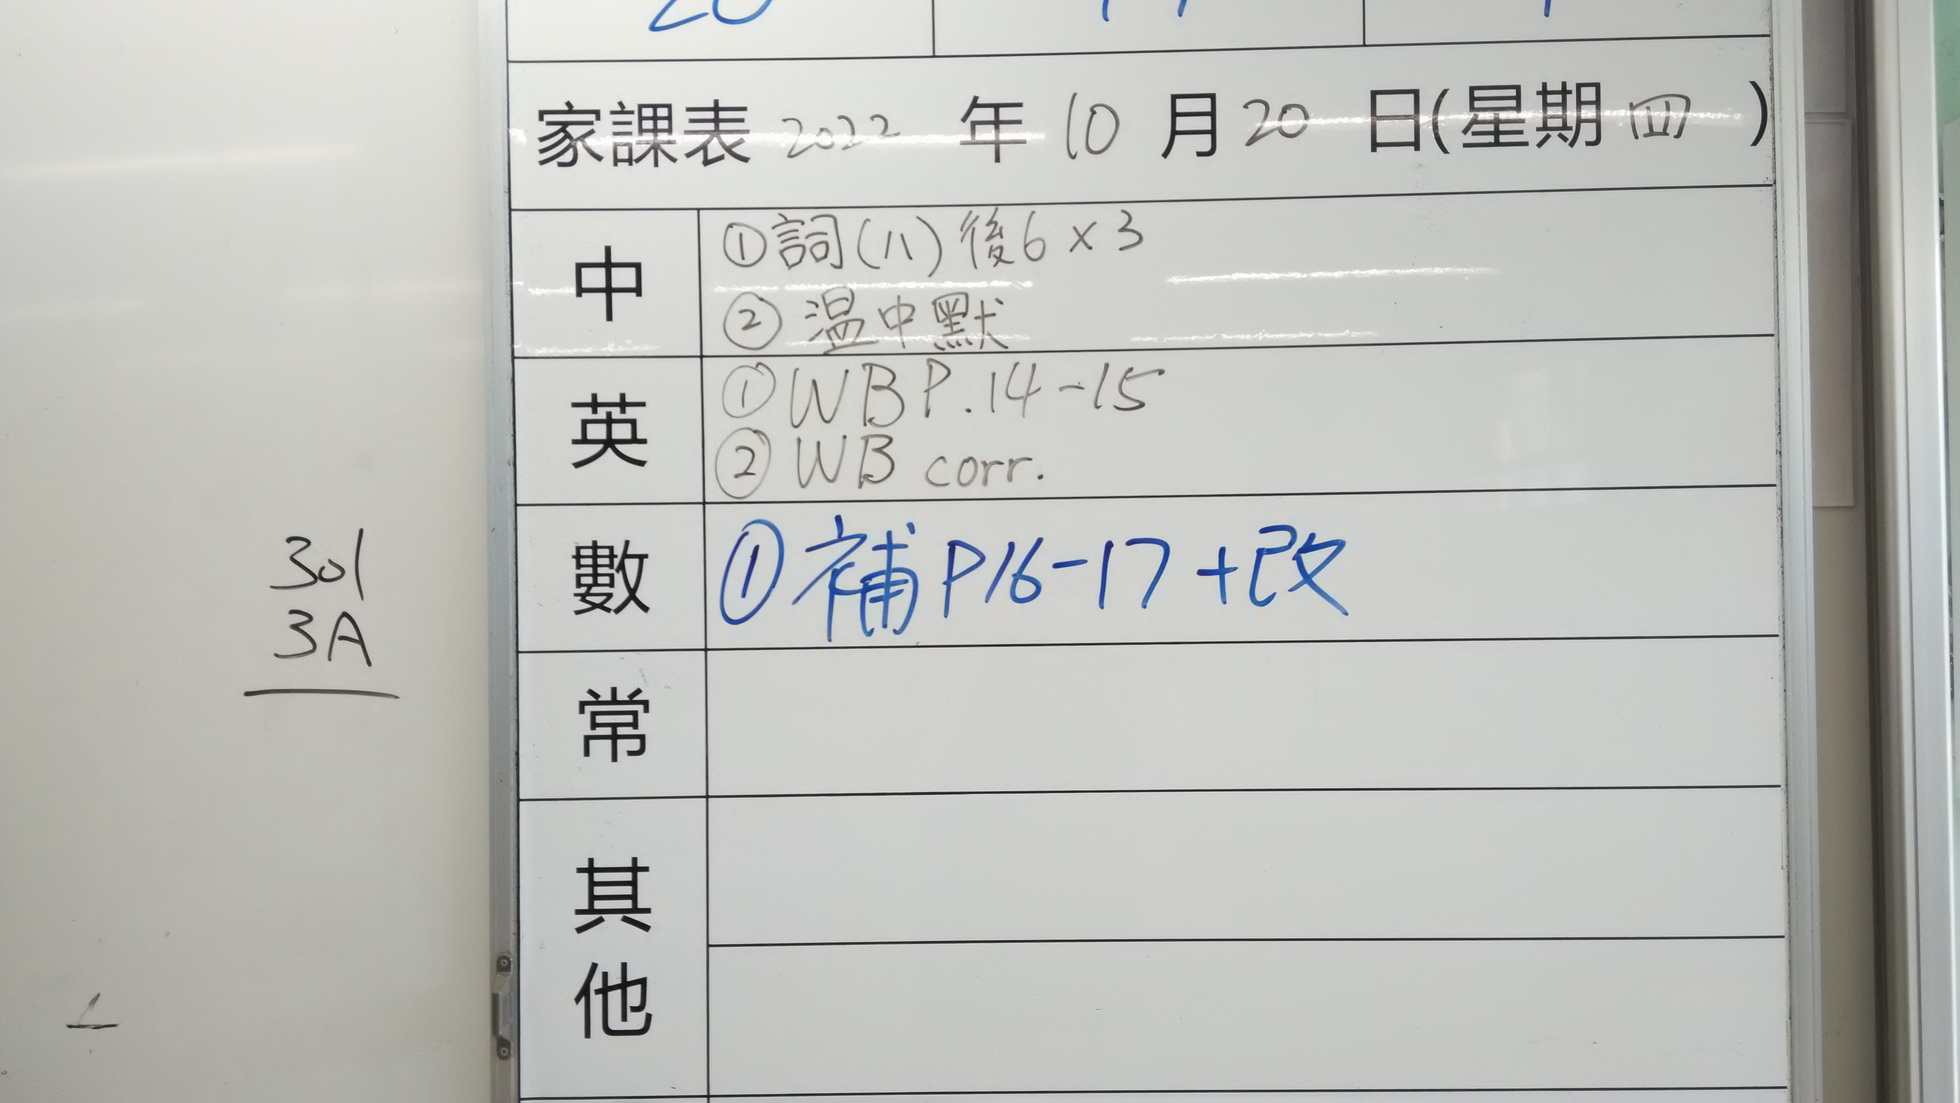 家課表 2022 年 10 月 20 日(星期四)
中
①詞(八)後6x3
②温中默
英
①WB P.14-15
②WB corr.
數
①補P16-17+改
常
其他
301
3A